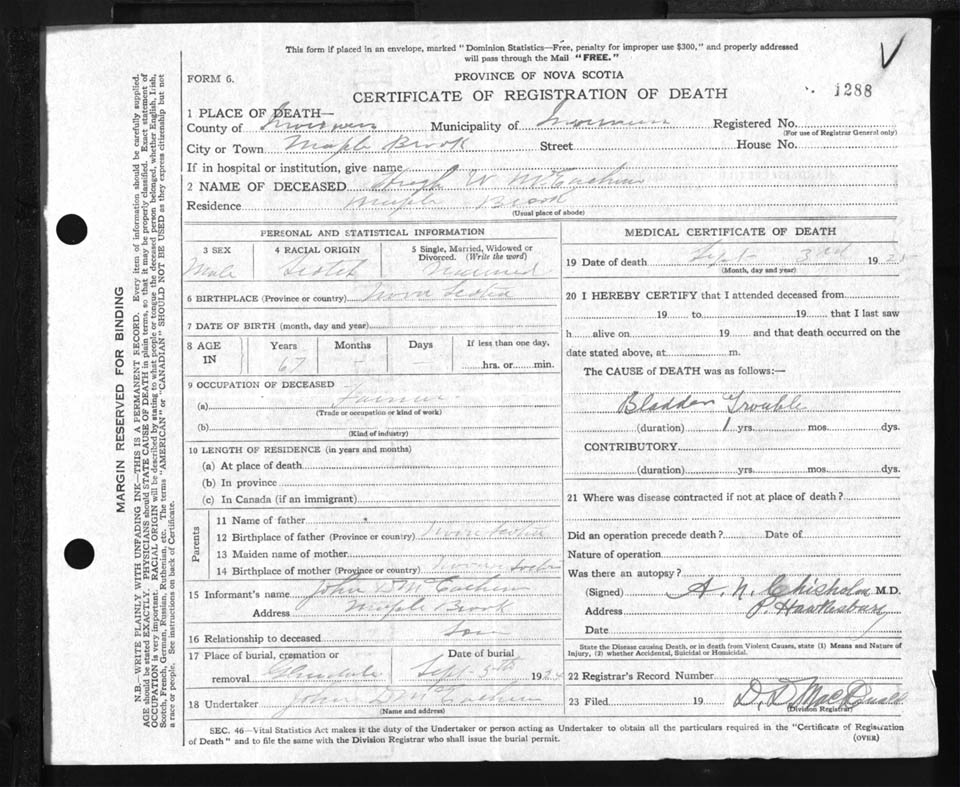 This form if placed in an envelope, marked "Dominion Statistics—Free, penalty for improper use $300," and properly addressed
will pass through the Mail "FREE."
FORM 6.
PROVINCE OF NOVA SCOTIA
CERTIFICATE OF REGISTRATION OF DEATH
1288
1 PLACE OF DEATH—
County of Inverness Municipality of Inverness Registered No.
(For use of Registrar General only)
City or Town Maple Brook Street House No.
If in hospital or institution, give name
2 NAME OF DECEASED Hugh W McEachern
Residence Maple Brook
(Usual place of abode)
PERSONAL AND STATISTICAL INFORMATION
3 SEX 4 RACIAL ORIGIN 5 Single, Married, Widowed or
Divorced. (Write the word)
Male Scotch Married
6 BIRTHPLACE (Province or country) Nova Scotia
7 DATE OF BIRTH (month, day and year)
8 AGE IN Years Months Days If less than one day,
67 hrs. or min.
9 OCCUPATION OF DECEASED
(a) Farmer
(Trade or occupation or kind of work)
(b)
(Kind of industry)
10 LENGTH OF RESIDENCE (in years and months)
(a) At place of death
(b) In province
(c) In Canada (if an immigrant)
Parents
11 Name of father
12 Birthplace of father (Province or country) Nova Scotia
13 Maiden name of mother
14 Birthplace of mother (Province or country) Nova Scotia
15 Informant's name John D McEachern
Address Maple Brook
16 Relationship to deceased Son
17 Place of burial, cremation or Date of burial
removal Glendale Sept 5th 1924
18 Undertaker John D McEachern
(Name and address)
MEDICAL CERTIFICATE OF DEATH
19 Date of death Sept 3rd 19
(Month, day and year)
20 I HEREBY CERTIFY that I attended deceased from
19 to 19 that I last saw
h alive on 19 and that death occurred on the
date stated above, at m.
The CAUSE of DEATH was as follows:—
Bladder Trouble
(duration) 1 yrs. mos. dys.
CONTRIBUTORY
(duration) yrs. mos. dys.
21 Where was disease contracted if not at place of death?
Did an operation precede death? Date of
Nature of operation
Was there an autopsy?
(Signed) A. N. Chisholm M.D.
Address P. Hawkesbury
Date
State the Disease causing Death, or in death from Violent Causes, state (1) Means and Nature of
Injury, (2) whether Accidental, Suicidal or Homicidal.
22 Registrar's Record Number
23 Filed 19 D. D. MacDonald
(Division Registrar)
SEC. 46—Vital Statistics Act makes it the duty of the Undertaker or person acting as Undertaker to obtain all the particulars required in the "Certificate of Registration
of Death" and to file the same with the Division Registrar who shall issue the burial permit.
(OVER)
MARGIN RESERVED FOR BINDING
N.B.—WRITE PLAINLY WITH UNFADING INK—THIS IS A PERMANENT RECORD. Every item of information should be carefully supplied.
AGE should be stated EXACTLY. PHYSICIANS should STATE CAUSE OF DEATH in plain terms, so that it may be properly classified. Exact statement of
OCCUPATION is very important. RACIAL ORIGIN will be described by stating to what people or tongue the deceased person belonged, whether English, Irish,
Scotch, French, German, Russian, Ruthenian, etc. The terms "AMERICAN" or "CANADIAN" SHOULD NOT BE USED as they express citizenship but not
a race or people. See instructions on back of Certificate.